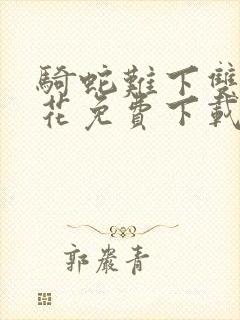 騎蛇難下雙
花免費下載
郭嚴青